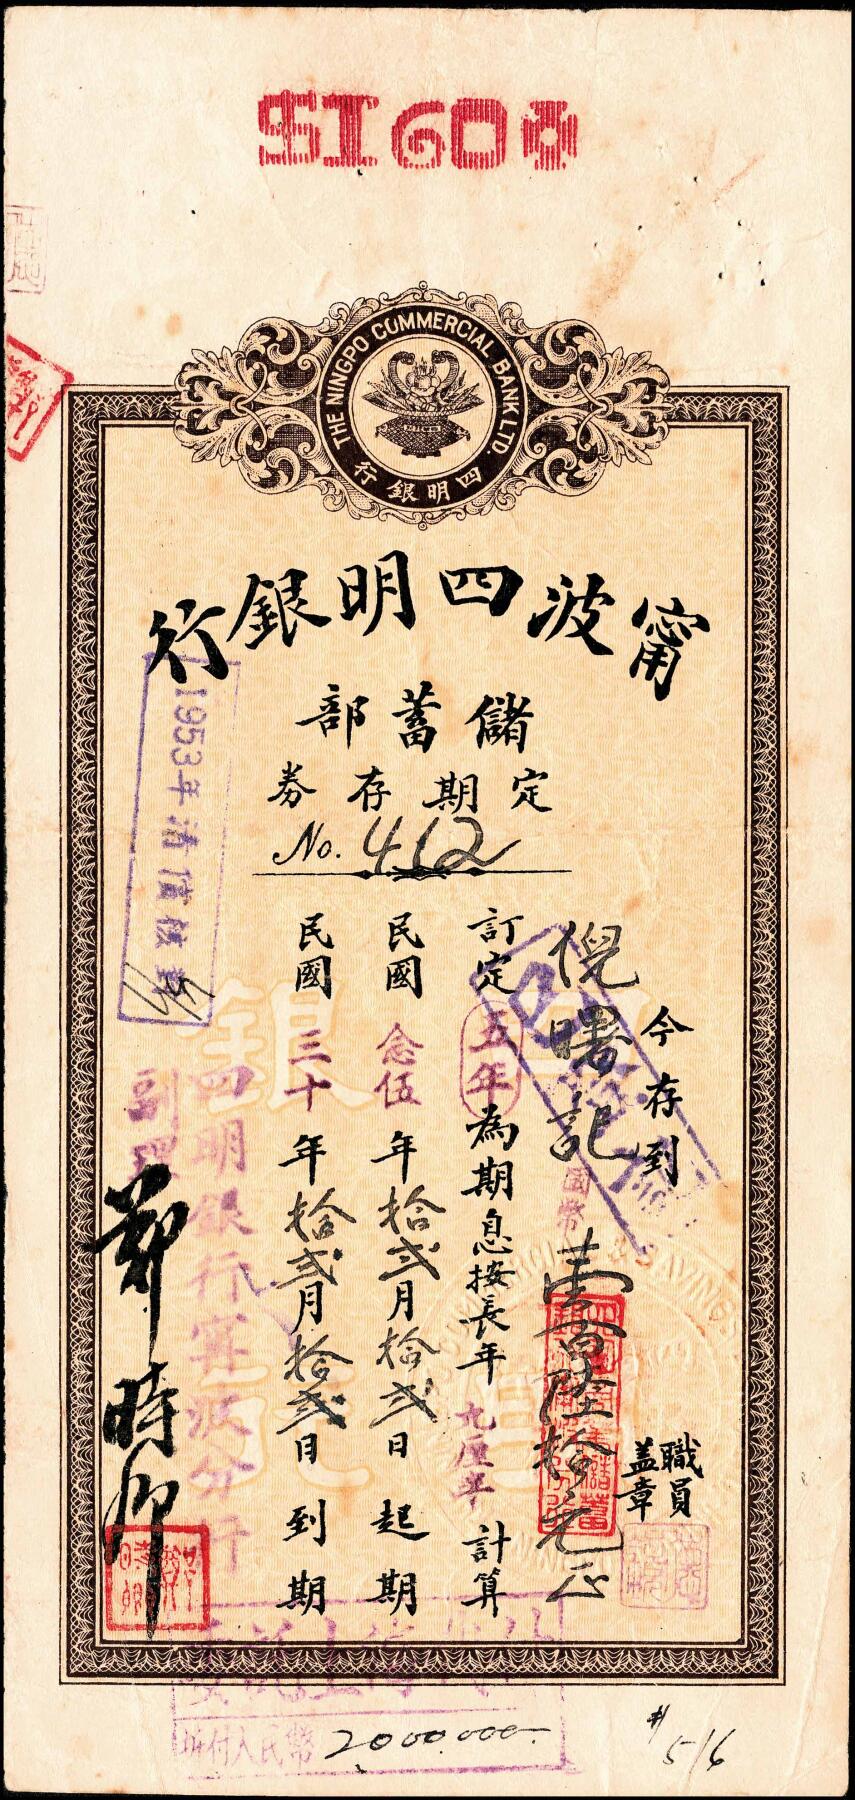 $160
THE NINGPO COMMERCIAL BANK LTD.
四明銀行
甯波四明銀行
儲蓄部
定期存券
No. 412
今存到
倪曙記
國幣 壹百陸拾元正
職員
盖章
訂定五年為期息按長年九厘半計算
民國念伍年拾弍月拾弍日起期
民國三十年拾弍月拾弍日到期
四明銀行寧波分行
副理
鄭時卿
1953年清償核訖
折付人民幣 2000.000-
#516